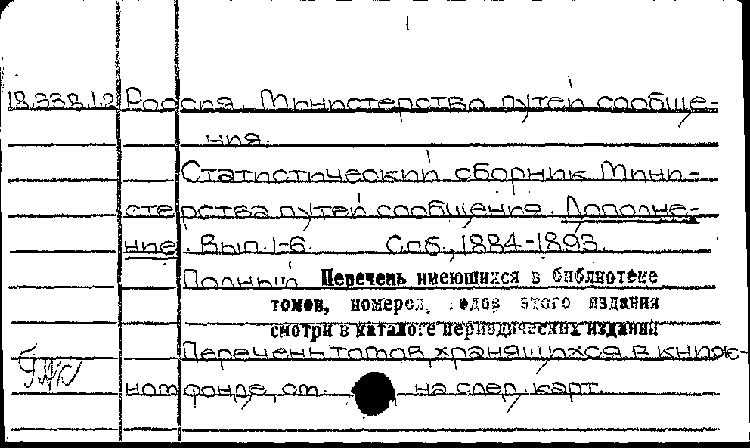 18.338.1.2 Россия. Министерство путей сообще-
ния.
Статистический сборник Мини-
стерства путей сообщения. Дополне-
ние. Вып. 1-6. Спб., 1884-1893.
Полный Перечень имеющихся в библиотеке
томов, номеров, годов этого издания
смотри в каталоге периодических изданий
Перечень томов, хранящихся в книж-
ном фонде, см. на след. карт.